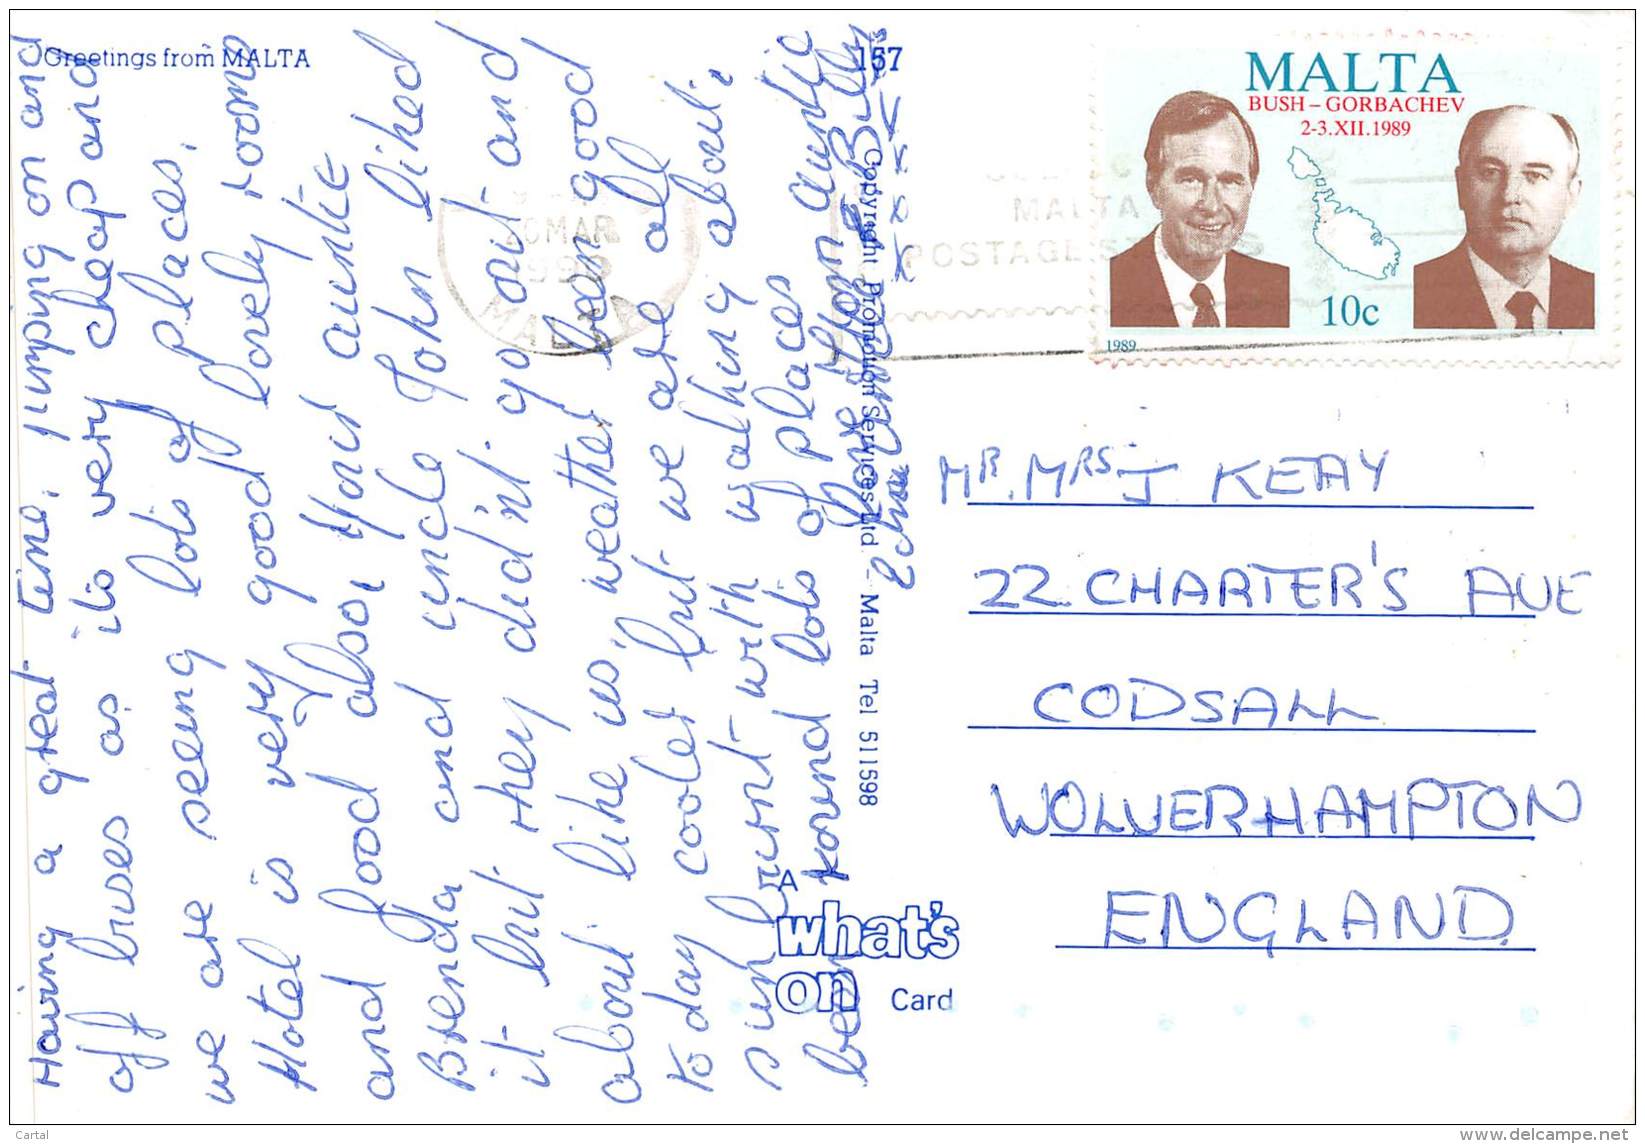 Greetings from MALTA
157
Having a great time, jumping on and
off buses as its very cheap and
we are seeing lots of places.
Hotel is very good lovely rooms
and food also, Your auntie
Brenda and uncle John liked
it but they did'nt go out and
about like us, weather been good
to day cooler but we are all
sun burnt with walking about,
been round lots of places
Love from auntie
& Billy
xxxxx
Copyright Promotion Services Ltd. - Malta Tel 511598
A
what's
on Card
MALTA
BUSH – GORBACHEV
2-3.XII.1989
10c
1989
20 MAR
MALTA
MALTA
POSTAGE
MR. MRS J KEAY
22 CHARTER'S AVE
CODSALL
WOLVERHAMPTON
ENGLAND
Cartal
www.delcampe.net